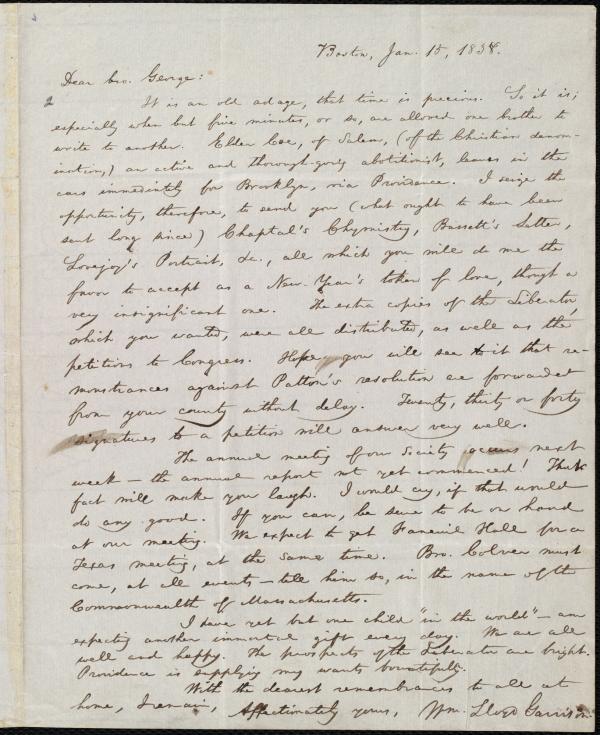 Boston, Jan. 15, 1838.
Dear bro. George:
It is an old adage, that time is precious. So it is;
especially when but five minutes, or so, are allowed one brother to
write to another. Elder Coe, of Salem, (of the Christian denom-
ination,) an active and thorough-going abolitionist, leaves in the
cars immediately for Brooklyn, via Providence. I seize the
opportunity, therefore, to send you (what ought to have been
sent long since) Chaptal's Chymistry, Bassett's Letter,
Lovejoy's Portrait, &c., all which you will do me the
favor to accept as a New-Year's token of love, though a
very insignificant one. The extra copies of the Liberator,
which you wanted, were all distributed, as well as the
petitions to Congress. Hope you will see to it that re-
monstrances against Patton's resolution are forwarded
from your county without delay. Twenty, thirty or forty
signatures to a petition will answer very well.
The annual meeting of our Society occurs next
week — the annual report not yet commenced! That
fact will make you laugh. I would cry, if that would
do any good. If you can, be sure to be on hand
at our meeting. We expect to get Faneuil Hall for a
Texas meeting, at the same time. Bro. Colver must
come, at all events — tell him so, in the name of the
Commonwealth of Massachusetts.
I have yet but one child "in the world" — am
expecting another immortal gift every day. We are all
well and happy. The prospects of the Liberator are bright.
Providence is supplying my wants bountifully.
With the dearest remembrances to all at
home, I remain, Affectionately yours, Wm. Lloyd Garrison.